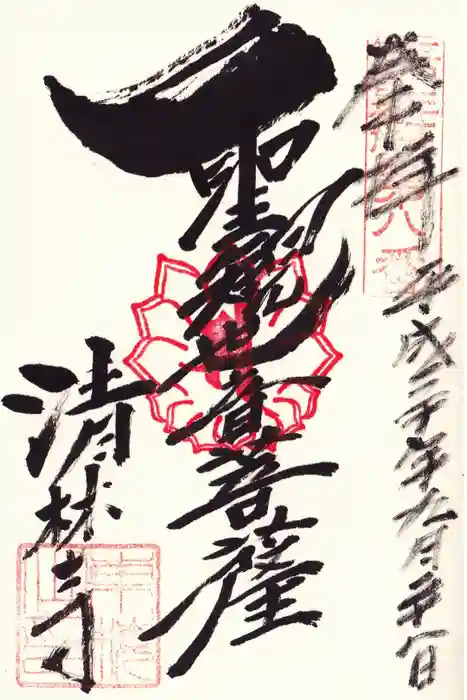 奉拝 平成二十年九月
聖観世音菩薩
清林寺